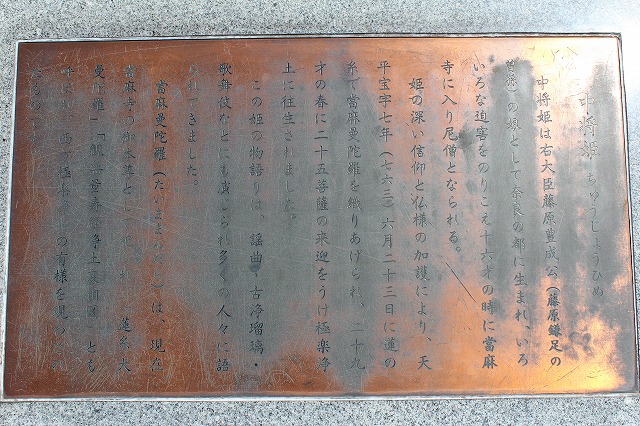 中将姫 ちゅうじょうひめ
中将姫は右大臣藤原豊成公(藤原鎌足の
の娘として奈良の都に生まれ、いろ
いろな迫害をのりこえ十六才の時に當麻
寺に入り尼僧となられる。
姫の深い信仰と仏様の加護により、天
平宝字七年(七六三)六月二十三日に蓮の
糸で當麻曼陀羅を織りあげられ、二十九
才の春に二十五菩薩の来迎をうけ極楽浄
土に往生されました。
この姫の物語りは、謡曲・古浄瑠璃・
歌舞伎などにも演じられ多くの人々に語
られてきました。
當麻曼陀羅(たいままんだら)は、現在
當麻寺の御本尊として
蓮糸大
曼陀羅」「観
浄土変相図」とも
の有様を見